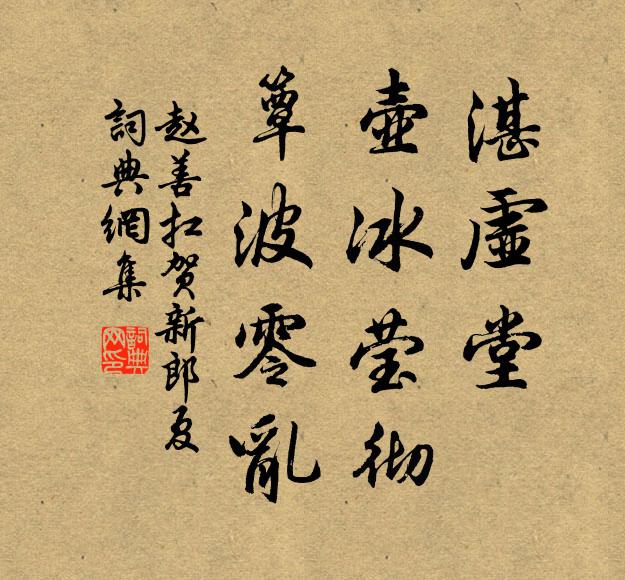 湛虚堂
壶冰莹彻
簟波零亂
赵善扛贺新郎夏
詞典網集
詞典网印